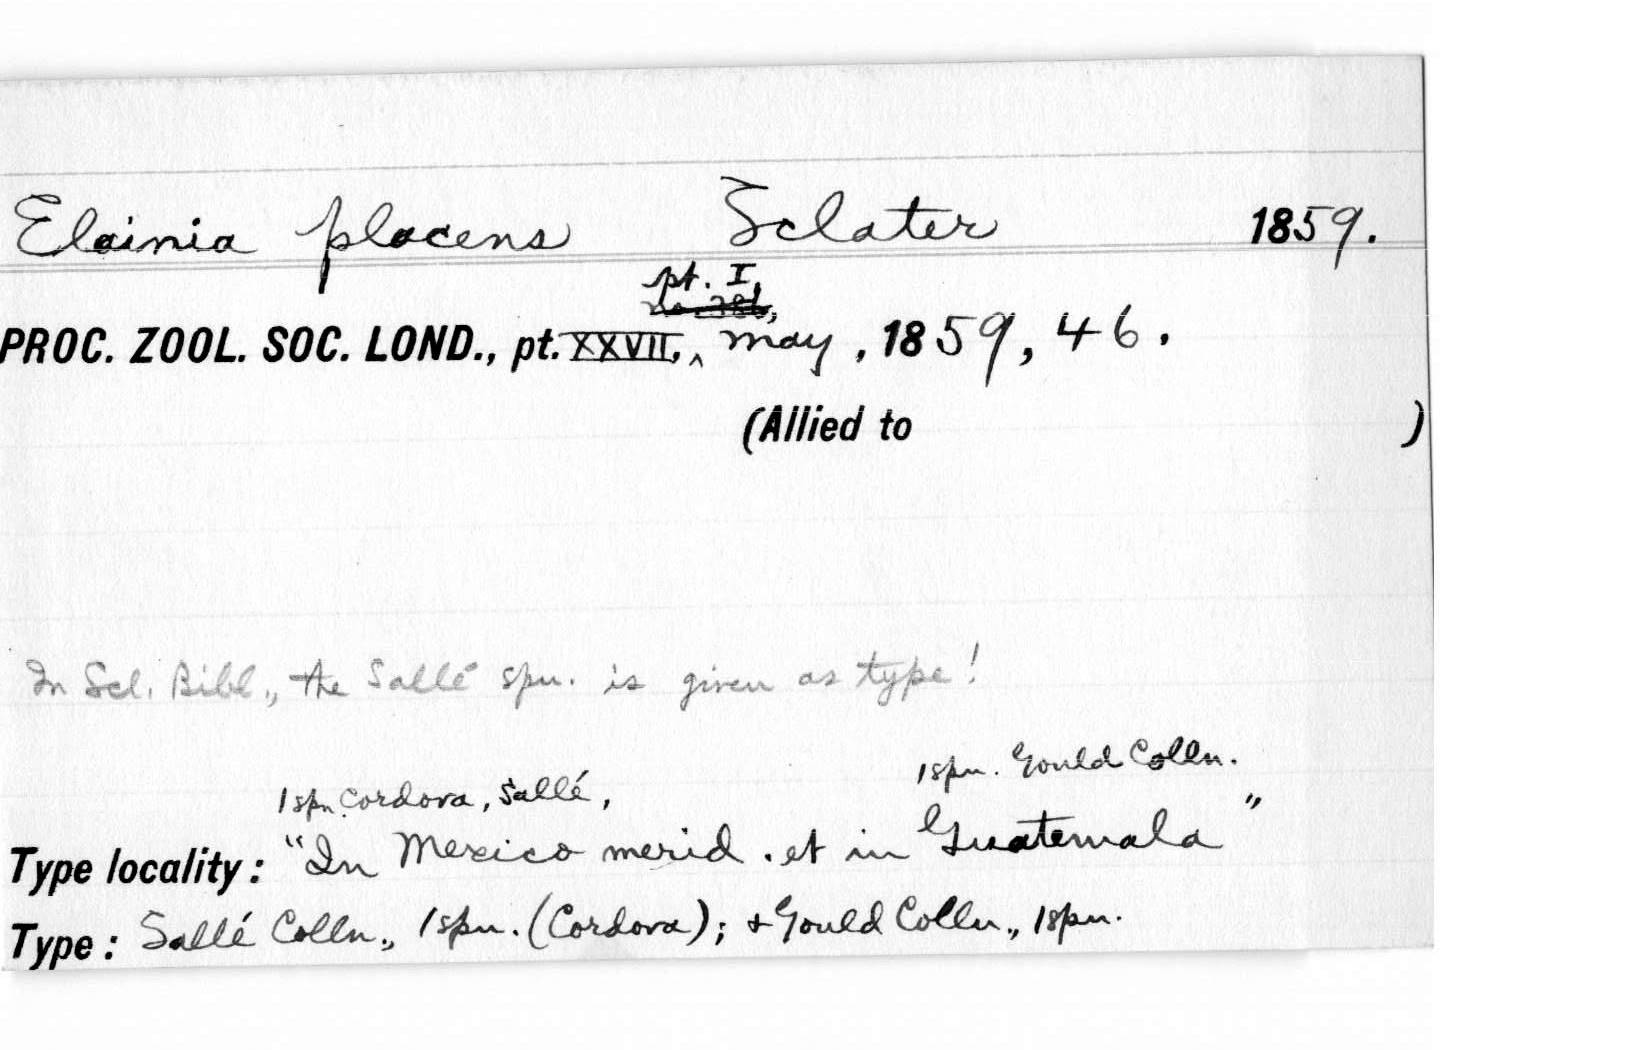 Elainia placens Sclater 1859.
pt. I,
PROC. ZOOL. SOC. LOND., pt. XXVII, ‸ May, 1859, 46.
(Allied to )
In Scl. Bibl., the Sallé spn. is given as type!
1 spn. Cordova, Sallé, 1 spn. Gould Colln.
Type locality: "In Mexico merid. et in Guatemala"
Type: Sallé Colln., 1 spn. (Cordova); + Gould Colln., 1 spn.